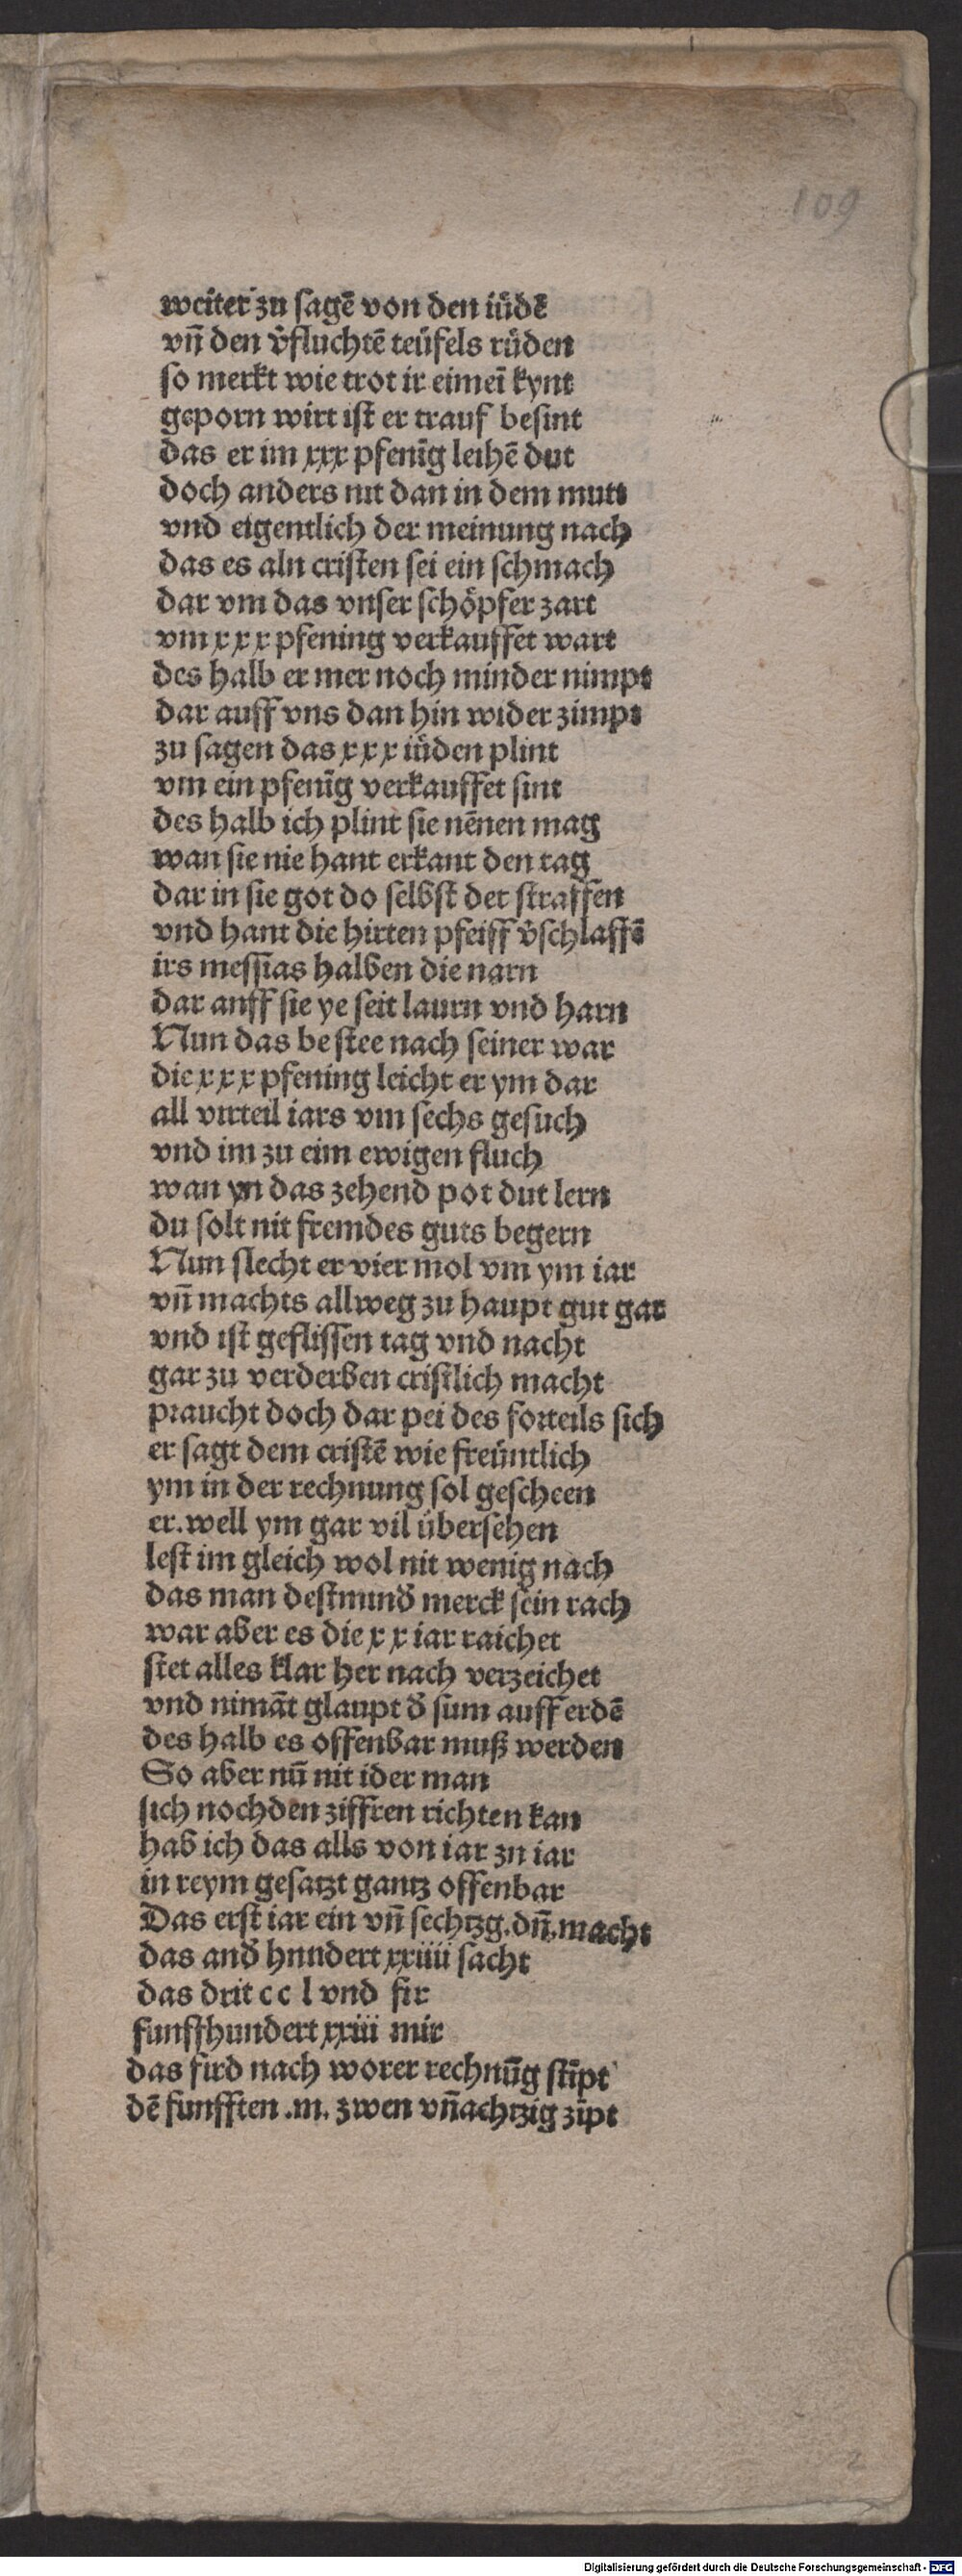 109
weiter zu sagē von den iüdē
vn̄ den v̾fluchtē teüfels rüden
so merkt wie trot ir eimeī kynt
geporn wirt ist er trauf besint
das er im xxx pfenīg leihē dut
doch anders nit dan in dem mutt
vnd eigentlich der meinung nach
das es aln cristen sei ein schmach
dar vm das vnser schöpfer zart
vm x x x pfening verkauffet wart
des halb er mer noch minder nimpt
dar auff vns dan hin wider zimpt
zu sagen das x x x iüden plint
vm ein pfenīg verkauffet sint
des halb ich plint sie nēnen mag
wan sie nie hant erkant den tag
dar in sie got do selbst det straffen
vnd hant die hirten pfeiff v̾schlaffē
irs messias halben die narn
dar anff sie ye seit laurn vnd harn
Nun das be stee nach seiner war
die x x x pfening leicht er ym dar
all virteil iars vm sechs gesuch
vnd im zu eim ewigen fluch
wan yn das zehend pot dut lern
du solt nit fremdes guts begern
Nun slecht er vier mol vm ym iar
vn̄ machts allweg zu haupt gut gar
vnd ist geflissen tag vnd nacht
gar zu verderben cristlich macht
praucht doch dar pei des forteils sich
er sagt dem cristē wie freüntlich
ym in der rechnung sol gescheen
er.well ym gar vil übersehen
lest im gleich wol nit wenig nach
das man destmind̾ merck sein rach
war aber es die x x iar raichet
stet alles klar her nach verzeichet
vnd nimāt glaupt d̾ sum auff erdē
des halb es offenbar muß werden
So aber nū nit ider man
sich nochden ziffren richten kan
hab ich das alls von iar zn iar
in reym gesatzt gantz offenbar
Das erst iar ein vn̄ sechtzg.dn̄.macht
das and̾ hnndert xxiiii sacht
das drit c c l vnd fir
funffhundert xxiii mir
das fird nach worer rechnūg stīpt
dē funfften .m. zwen vn̄achtzig zīpt
2
Digitalisierung gefördert durch die Deutsche Forschungsgemeinschaft - DFG